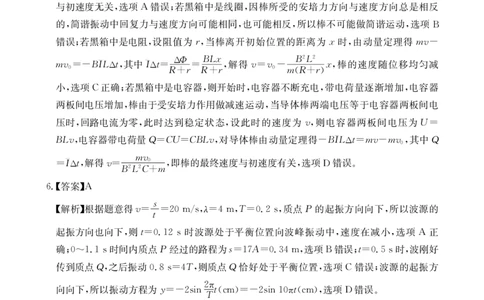 与初速度无关,选项 A 错误;若黑箱中是线圈,因棒所受的安培力方向与速度方向总是相反
的,简谐振动中回复力与速度方向可能相同,也可能相反,所以棒不可能做简谐运动,选项 B
错误;若黑箱中是电阻,设阻值为 r,当棒离开初始位置的距离为 x 时,由动量定理得 mv-
mv₀=-BILΔt,其中 IΔt=ΔΦ/(R+r)=BLx/(R+r),解得 v=v₀-B²L²/(m(R+r))x,棒的速度随位移均匀减
小,选项 C 正确;若黑箱中是电容器,则开始时,电容器不断充电,带电荷量逐渐增加,电容器
两板间电压增加,棒由于受安培力作用做减速运动,当导体棒两端电压等于电容器两板间电
压时,回路电流为零,此时达到稳定状态,设此时的速度为 v,则电容器两板间电压为 U=
BLv,电容器带电荷量 Q=CU=CBLv,对导体棒由动量定理得-BILΔt=mv-mv₀,其中 Q
=IΔt,解得 v=mv₀/(B²L²C+m),即棒的最终速度与初速度有关,选项 D 错误。
6.【答案】A
【解析】根据题意得 v=s/t=20 m/s,λ=4 m,T=0.2 s,质点 P 的起振方向向下,所以波源的
起振方向也向下,则 t=0.12 s 时波源处于平衡位置向波峰振动中,速度在减小,选项 A 正
确;0~1.1 s 时间内质点 P 经过的路程为 s=17A=0.34 m,选项 B 错误;t=0.5 s 时,波刚好
传到质点 Q,之后振动 0.8 s=4T,则质点 Q 恰好处于平衡位置,选项 C 错误;波源的起振方
向向下,所以振动方程为 y=-2sin 2π/T t(cm)=-2sin 10πt(cm),选项 D 错误。